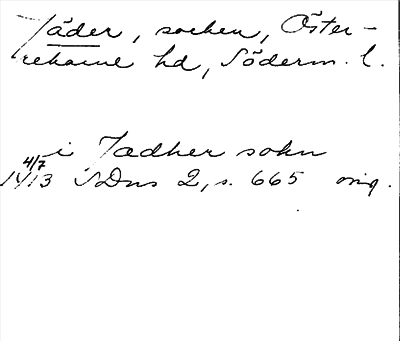 Jäder, socken, Öster-
rekarne hd, Söderm. l.
i Jædher sokn
4/7
1413 SDns 2, s. 665 orig.